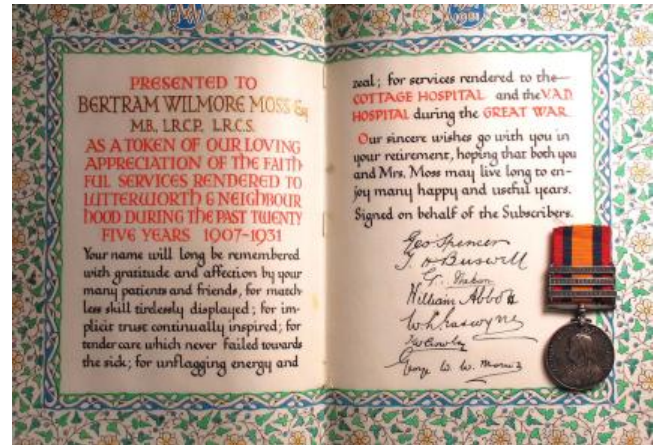 PRESENTED TO
BERTRAM WILMORE MOSS Esq
M.B. L.R.C.P. L.R.C.S.
AS A TOKEN OF OUR LOVING
APPRECIATION OF THE FAITH
FUL SERVICES RENDERED TO
LUTTERWORTH & NEIGHBOUR
HOOD DURING THE PAST TWENTY
FIVE YEARS 1907-1931
Your name will long be remembered
with gratitude and affection by your
many patients and friends, for match-
less skill tirelessly displayed; for im-
plicit trust continually inspired; for
tender care which never failed towards
the sick; for unflagging energy and
zeal; for services rendered to the
COTTAGE HOSPITAL and the V.A.D.
HOSPITAL during the GREAT WAR.
Our sincere wishes go with you in
your retirement, hoping that both you
and Mrs. Moss may live long to en-
joy many happy and useful years.
Signed on behalf of the Subscribers.
Geo Spencer
William Abbott
George W. W.